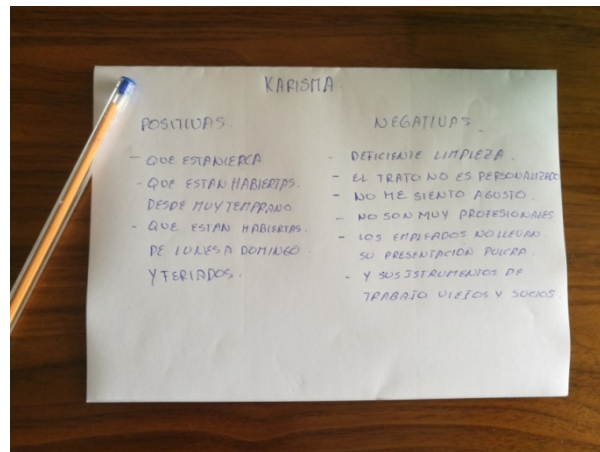 KARISMA.
POSITIVAS.
- QUE ESTANIERCA
- QUE ESTAN HABIERTAS.
DESDE MUY TEMPRANO
- QUE ESTAN HABIERTAS.
DE LUNES A DOMINGO
Y FERIADOS.
NEGATIVAS
- DEFICIENTE LIMPIEZA.
- EL TRATO NO ES PERSONALIZADO
- NO ME SIENTO AGUSTO.
- NO SON MUY PROFESIONALES
- LOS EMPLEADOS NO LLEVAN.
SU PRESENTACIÓN PULCRA.
- Y SUS ISTRUMENTOS DE
TRABAJO VIEJOS Y SUCIOS.